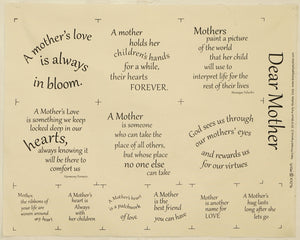 A mother's love
is always
in bloom.
A mother
holds her
children's hands
for a while,
their hearts
FOREVER.
Mothers
paint a picture
of the world
that her child
will use to
interpret life for the
rest of their lives
Dear Mother
A Mother's Love
is something we keep
locked deep in our
hearts,
always knowing it
will be there to
comfort us
A Mother
is someone
who can take the
place of all others,
but whose place
no one else
can take
God sees us through
our mothers' eyes
and rewards us
for our virtues
Mothers
the ribbons of
your life are
woven around
my heart
A Mother's
heart is
Always
with
her children
A Mother's heart is a
patchwork
of love
A Mother
is the best
friend
you can have
Mother
is another
name for
LOVE
A Mother's
hug lasts
long after she
lets go